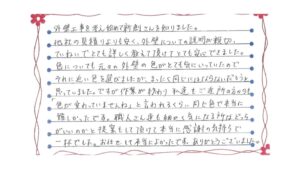 外壁工事を考え始めて新創さんを知りました。
他社の見積りよりも安く、外壁についての説明が親切、
ていねいでとても詳しく教えて頂けてとても安心でできました。
色についても元々の外壁の色がとても気にいっていたので
それに近い色を選びましたが、まったく同じにはならないだろうと
思っていましたが作業が終わり、私達もご近所の方々も
色が変わっていませんね」と言われるくらいに同じ色で本当に
嬉しかったです。職人さん達も細かく気になる所はどっち
がいいのかと提案もして頂けて本当に感謝の気持ちで
一杯でした。お任せして本当によかったです。ありがとうございました。